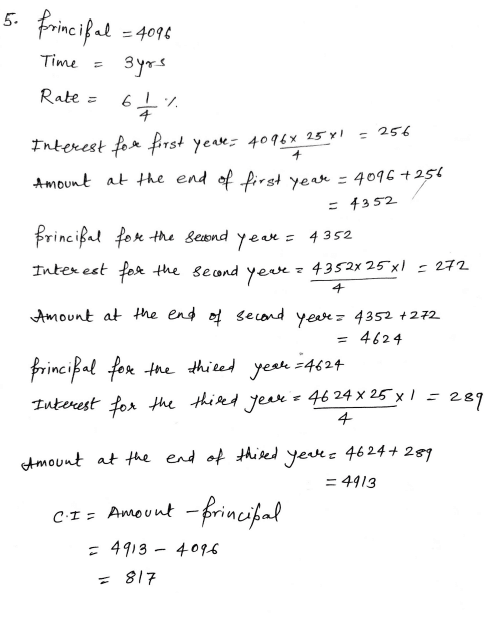 5. Principal = 4096
Time = 3yrs
Rate = 6 1/4 %
Interest for first year = 4096 x 25 x 1 / 4 = 256
Amount at the end of first year = 4096 + 256
= 4352
Principal for the second year = 4352
Interest for the second year = 4352 x 25 x 1 / 4 = 272
Amount at the end of second year = 4352 + 272
= 4624
Principal for the third year = 4624
Interest for the third year = 4624 x 25 x 1 / 4 = 289
Amount at the end of third year = 4624 + 289
= 4913
C.I = Amount - Principal
= 4913 - 4096
= 817